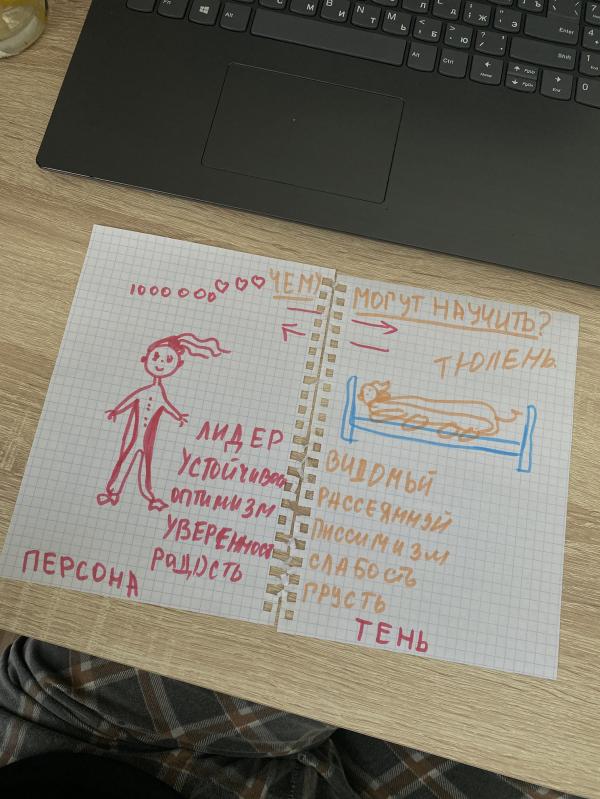 1000000
ЧЕМУ МОГУТ НАУЧИТЬ?
ТЮЛЕНЬ
ЛИДЕР
УСТОЙЧИВОЙ
ОПТИМИЗМ
УВЕРЕННОСТЬ
РАДОСТЬ
ПЕРСОНА
ВИДОМЫЙ
РАССЕЯННЫЙ
ПИССИМИЗМ
СЛАБОСТЬ
ГРУСТЬ
ТЕНЬ